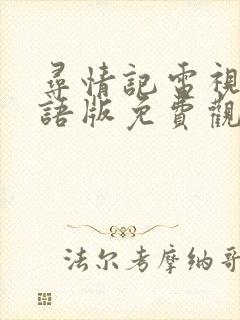 尋情記電視
語版免費觀
法尔考摩纳哥